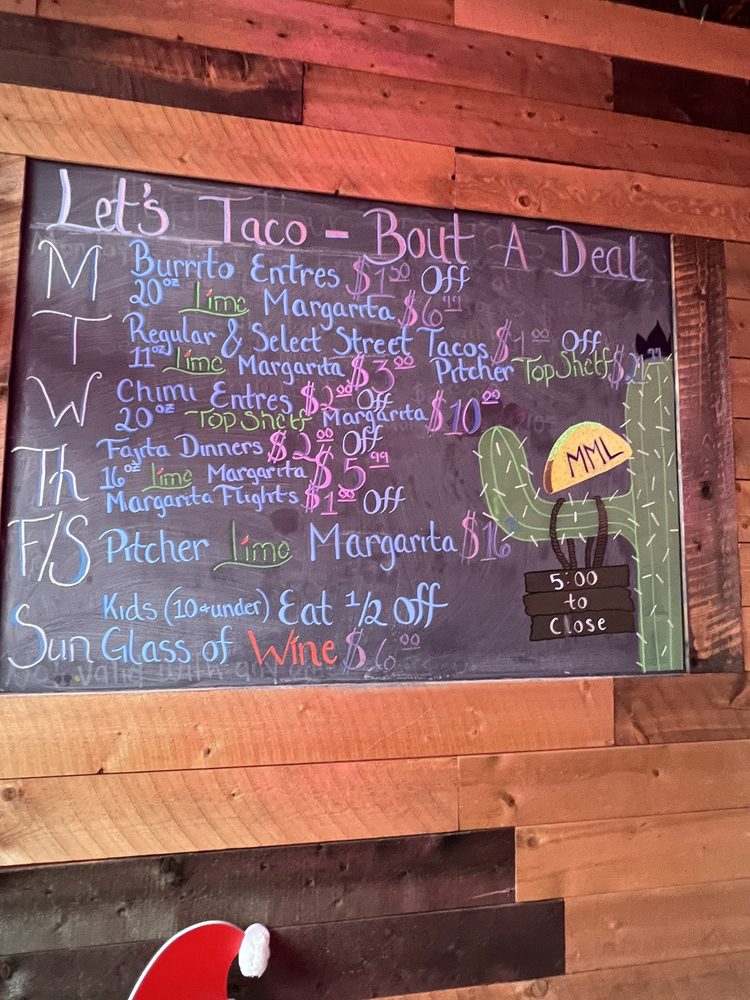 Let's Taco - Bout A Deal
M Burrito Entres $1.50 Off
20oz Lime Margarita $6.99
T Regular & Select Street Tacos $1.00 Off
11oz Lime Margarita $3.00 Pitcher Top Shelf
W Chimi Entres $2.00 Off
20oz Top Shelf Margarita $10.00
Th Fajita Dinners $2.00 Off
16oz Lime Margarita $5.99
Margarita Flights $1.00 Off
F/S Pitcher Lime Margarita $16
Kids (10 & under) Eat 1/2 Off
Sun Glass of Wine $6.00
MML
5:00
to
Close